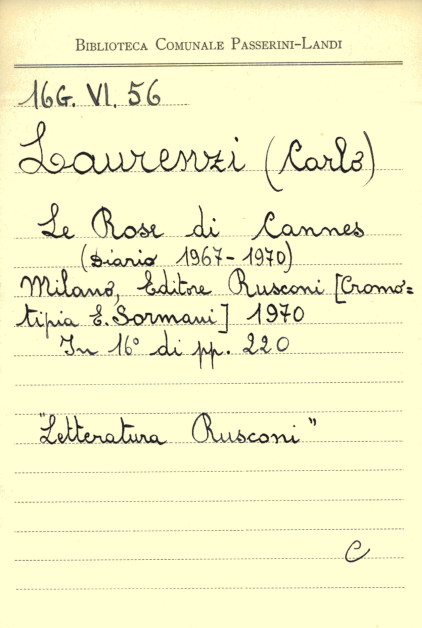 BIBLIOTECA COMUNALE PASSERINI-LANDI
16G. VI. 56
Laurenzi (Carlo)
Le Rose di Cannes
(Diario 1967-1970)
Milano, Editore Rusconi [Cromo=
tipia E. Sormani] 1970
In 16° di pp. 220
"Letteratura Rusconi"
C